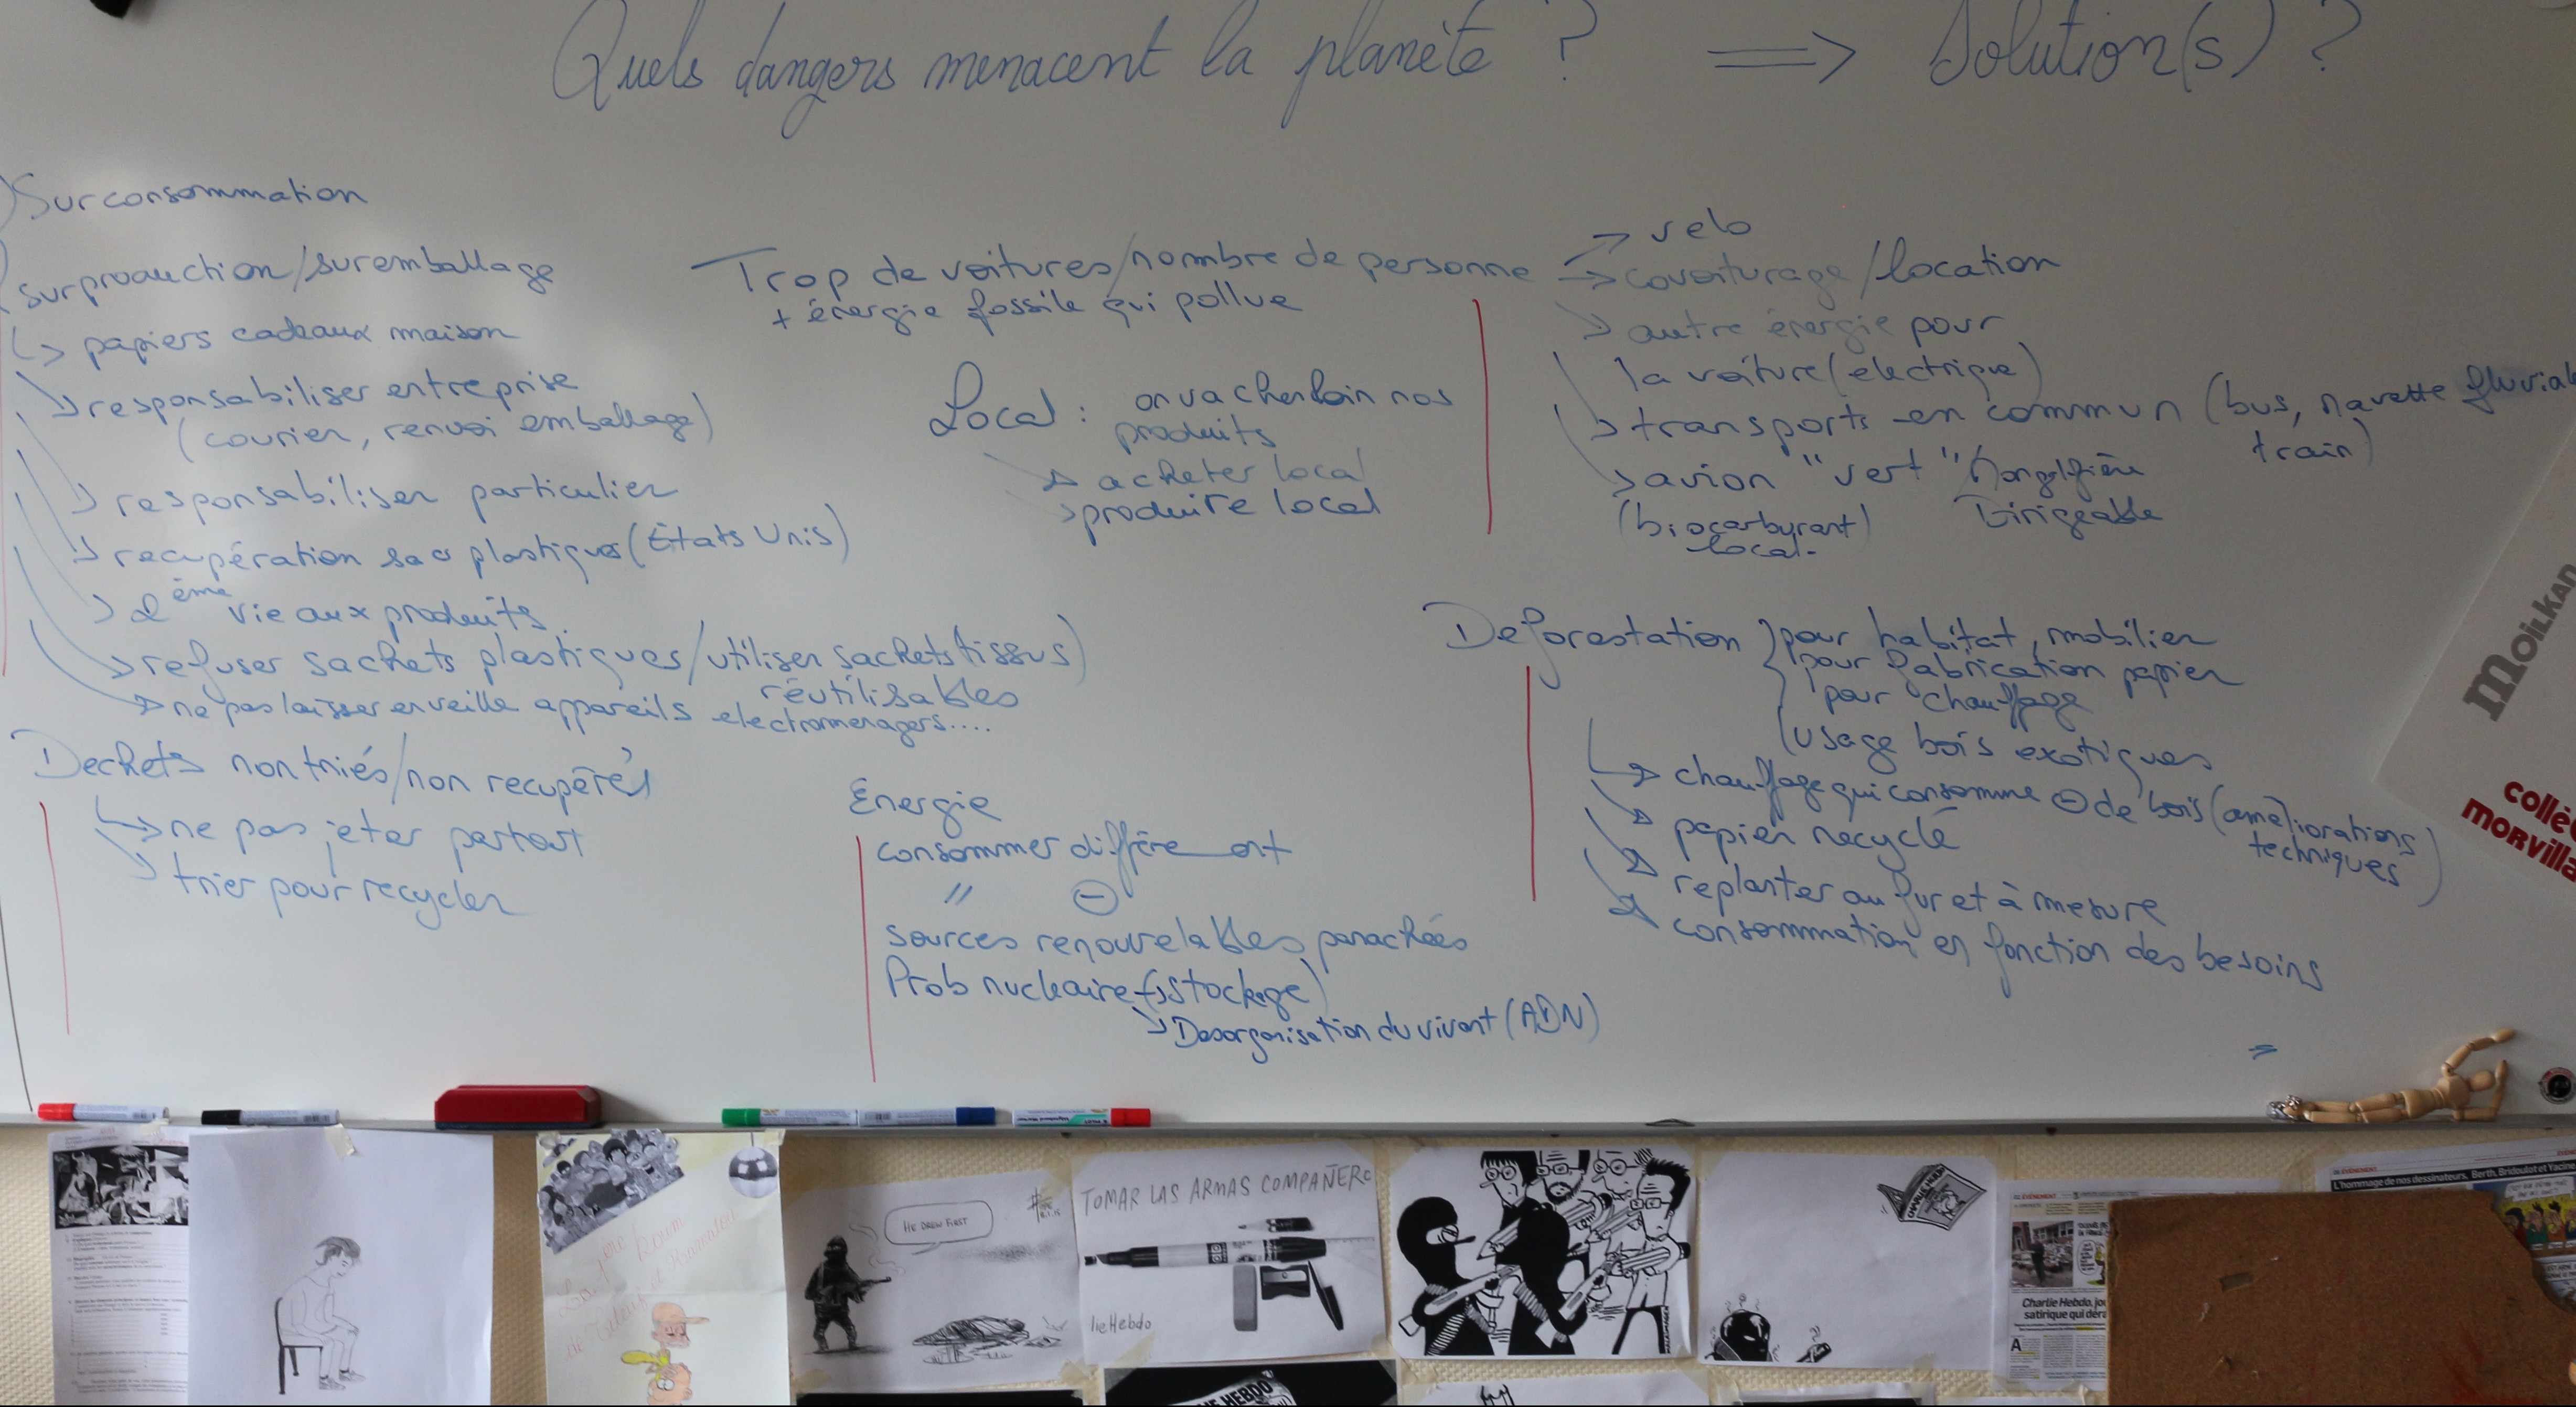 Quels dangers menacent la planète ? ⟹ Solution(s) ?
Surconsommation
surproduction/suremballage
↳ papiers cadeaux maison
↘ responsabiliser entreprise
(courier, renvoi emballage)
↘ responsabiliser particulier
↘ recupération sacs plastiques (États Unis)
↘ 2ème vie aux produits
↘ refuser sachets plastiques/utiliser sachets tissus)
réutilisables
↘ ne pas laisser en veille appareils electromenagers....
Dechets non triés/non recupérés
↳ ne pas jeter partout
↘ trier pour recycler
Trop de voitures/nombre de personne
+ énergie fossile qui pollue
→ velo
→ covoiturage/location
↘ autre énergie pour
la voiture (électrique)
↘ transports en commun (bus, navette fluviale
train)
↘ avion "vert"/Mongolfière
(biocarburant) Dirigeable
local
Local : on va cher loin nos
produits
↘ acheter local
↘ produire local
Energie
consommer différement
" ⊖
sources renouvelables panachées
Prob nucleaire (→stockage)
↘ Desorganisation du vivant (ADN)
Deforestation } pour habitat, mobilier
pour fabrication papier
pour chauffage
(usage bois exotiques
↳ chauffage qui consomme ⊖ de bois (améliorations
techniques)
↘ papier recyclé
↘ replanter au fur et à mesure
↘ consommation en fonction des besoins
MOILKAN
collè
MORVILLA
HE DREW FIRST
TOMAR LAS ARMAS COMPAÑERO
lieHebdo
CHARLIE HEBDO
HEBDO
ÉVÉNEMENT
Charlie Hebdo, jou
satirique qui déra
L'hommage de nos dessinateurs, Berth, Bridoulot et Yacine